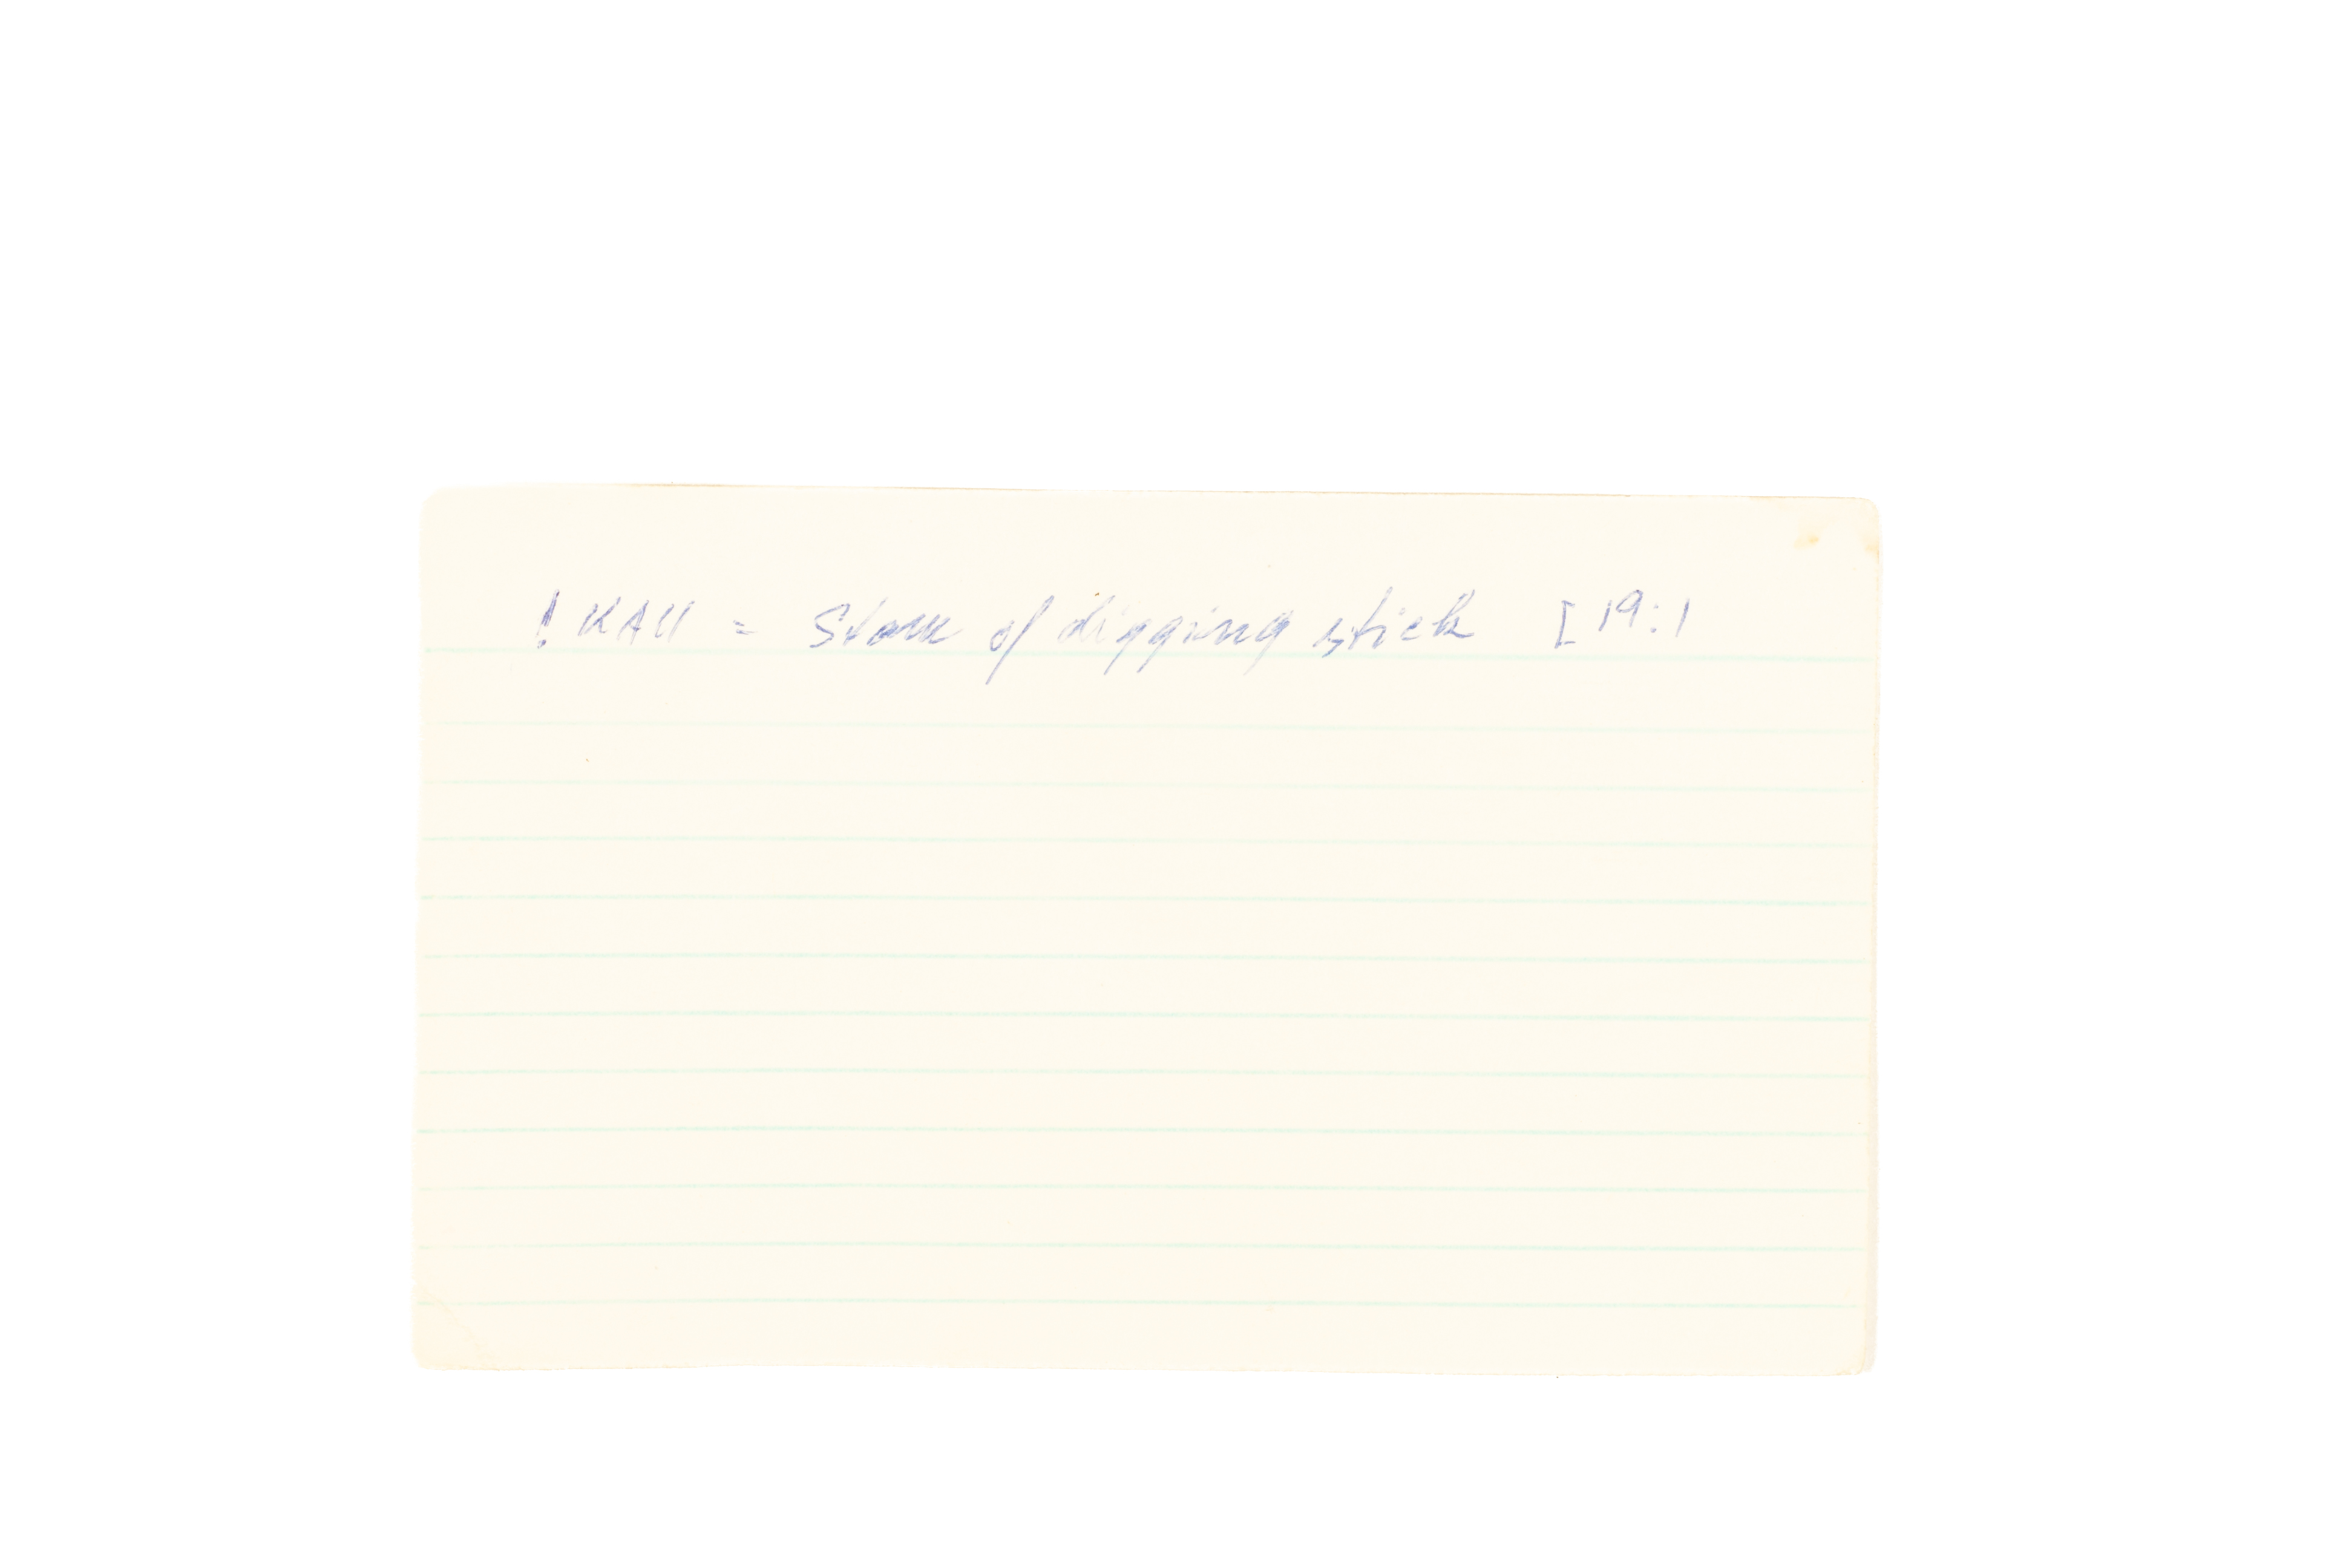 ! KAU = Stone of digging stick [19:1